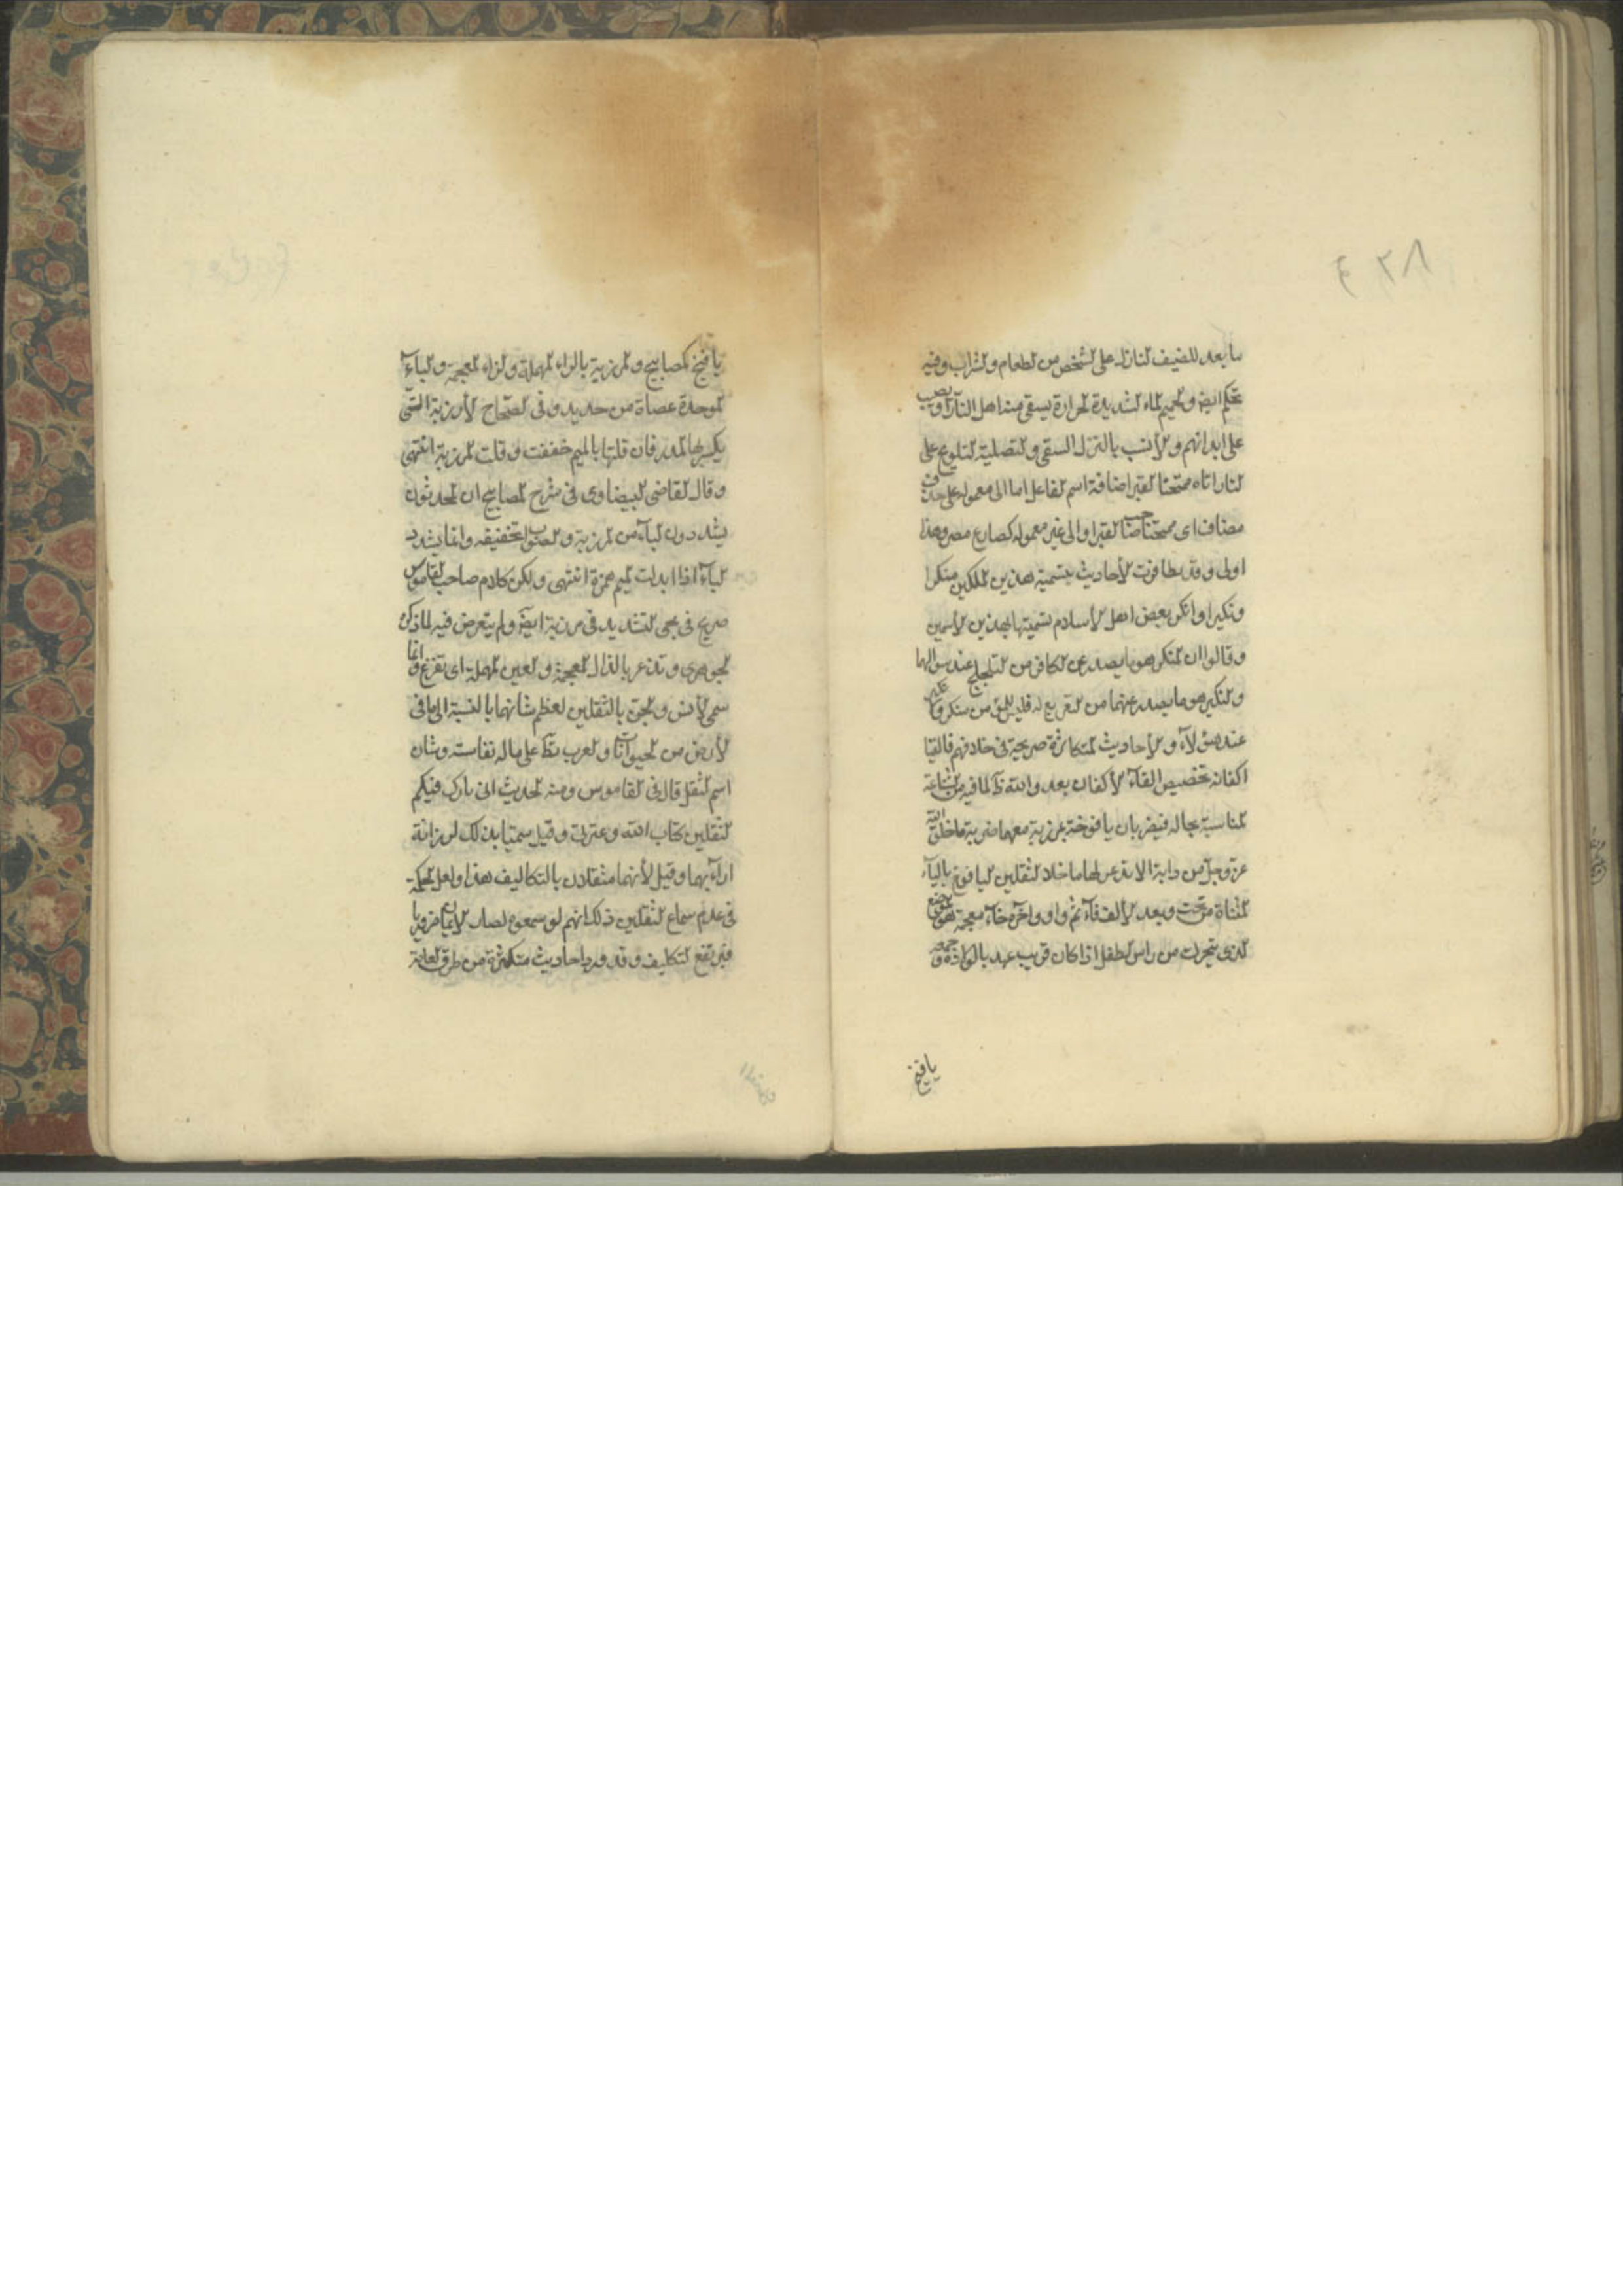 ما يعد للضيف النازل على الشخص من الطعام والشراب وفيه
تهكم ايضا والحميم الماء الشديد الحرارة يسقى منه اهل النار او يصب
على ابدانهم والأنسب بالنزل السقى والتصلية التلويح على
النار اتاه ممتحنا القبر اضافة اسم الفاعل اما الى معموله على حذف
مضاف اى ممتحنا صاحب القبر او الى غير معموله كمصارع مصر وهذا
اولى وقد تظافرت الأحاديث بتسمية هذين الملكين منكرا
ونكيرا وانكر بعض اهل الأسلام تسميتهما بهذين الأسمين
وقالوا ان المنكر هو ما يصدر عن الكافر من التلجلج عند سؤالهما
والنكير هو ما يصدر عنهما من التقريع له فليس للمؤمن منكر ونكير
عند هؤلاء والأحاديث المتكاثرة صريحة فى خلافهم فالقيا
اكفانه تخصيص القاء الأكفان بعدو الله ظ لما فيه من الشناعة
المناسبة بحاله فيضربان يافوخه بمرزبة معهما ضربة ما خلق الله
عز وجل من دابة الا تذعر لها ما خلا الثقلين اليافوخ بالياء
المثناة من تحت وبعد الألف فاء ثم واو واخره خاء معجمة هو الموضع
الذى يتحرك من راس الطفل اذا كان قريب عهد بالولادة وجمعه
يافيخ
يافيخ كمصابيح والمرزبة بالراء المهملة والزاء المعجمة والباء
الموحدة عصاة من حديد وفى الصحاح الأرزبة التى
يكسر بها المدر فان قلتها بالميم خففت وقلت المرزبة انتهى
وقال القاضى البيضاوى فى شرح المصابيح ان المحدثون
يشددون الباء من المرزبة والصواب تخفيفه وانما يشدد
الباء اذا ابدلت الميم همزة انتهى ولكن كلام صاحب القاموس
صريح فى مجئ التشديد فى مرزبة ايضا ولم يتعرض فيه لما ذكره
الجوهرى وتذعر بالذال المعجمة والعين المهملة اى تفزع وانما
سمى الأنس والجن بالثقلين لعظم شانهما بالنسبة الى ما فى
الأرض من الحيوانات والعرب تطلق على ما له نفاسة وشان
اسم الثقل قال فى القاموس ومنه الحديث انى تارك فيكم
الثقلين كتاب الله وعترتى وقيل سميتا بذلك لرزانة
ارائهما وقيل لأنهما مثقلان بالتكاليف هذا ولعل الحكمة
فى عدم سماع الثقلين ذلك انهم لو سمعوه لصار الأيمان ضروريا
فيرتفع التكليف وقد ورد احاديث متكثرة من طرق العامة